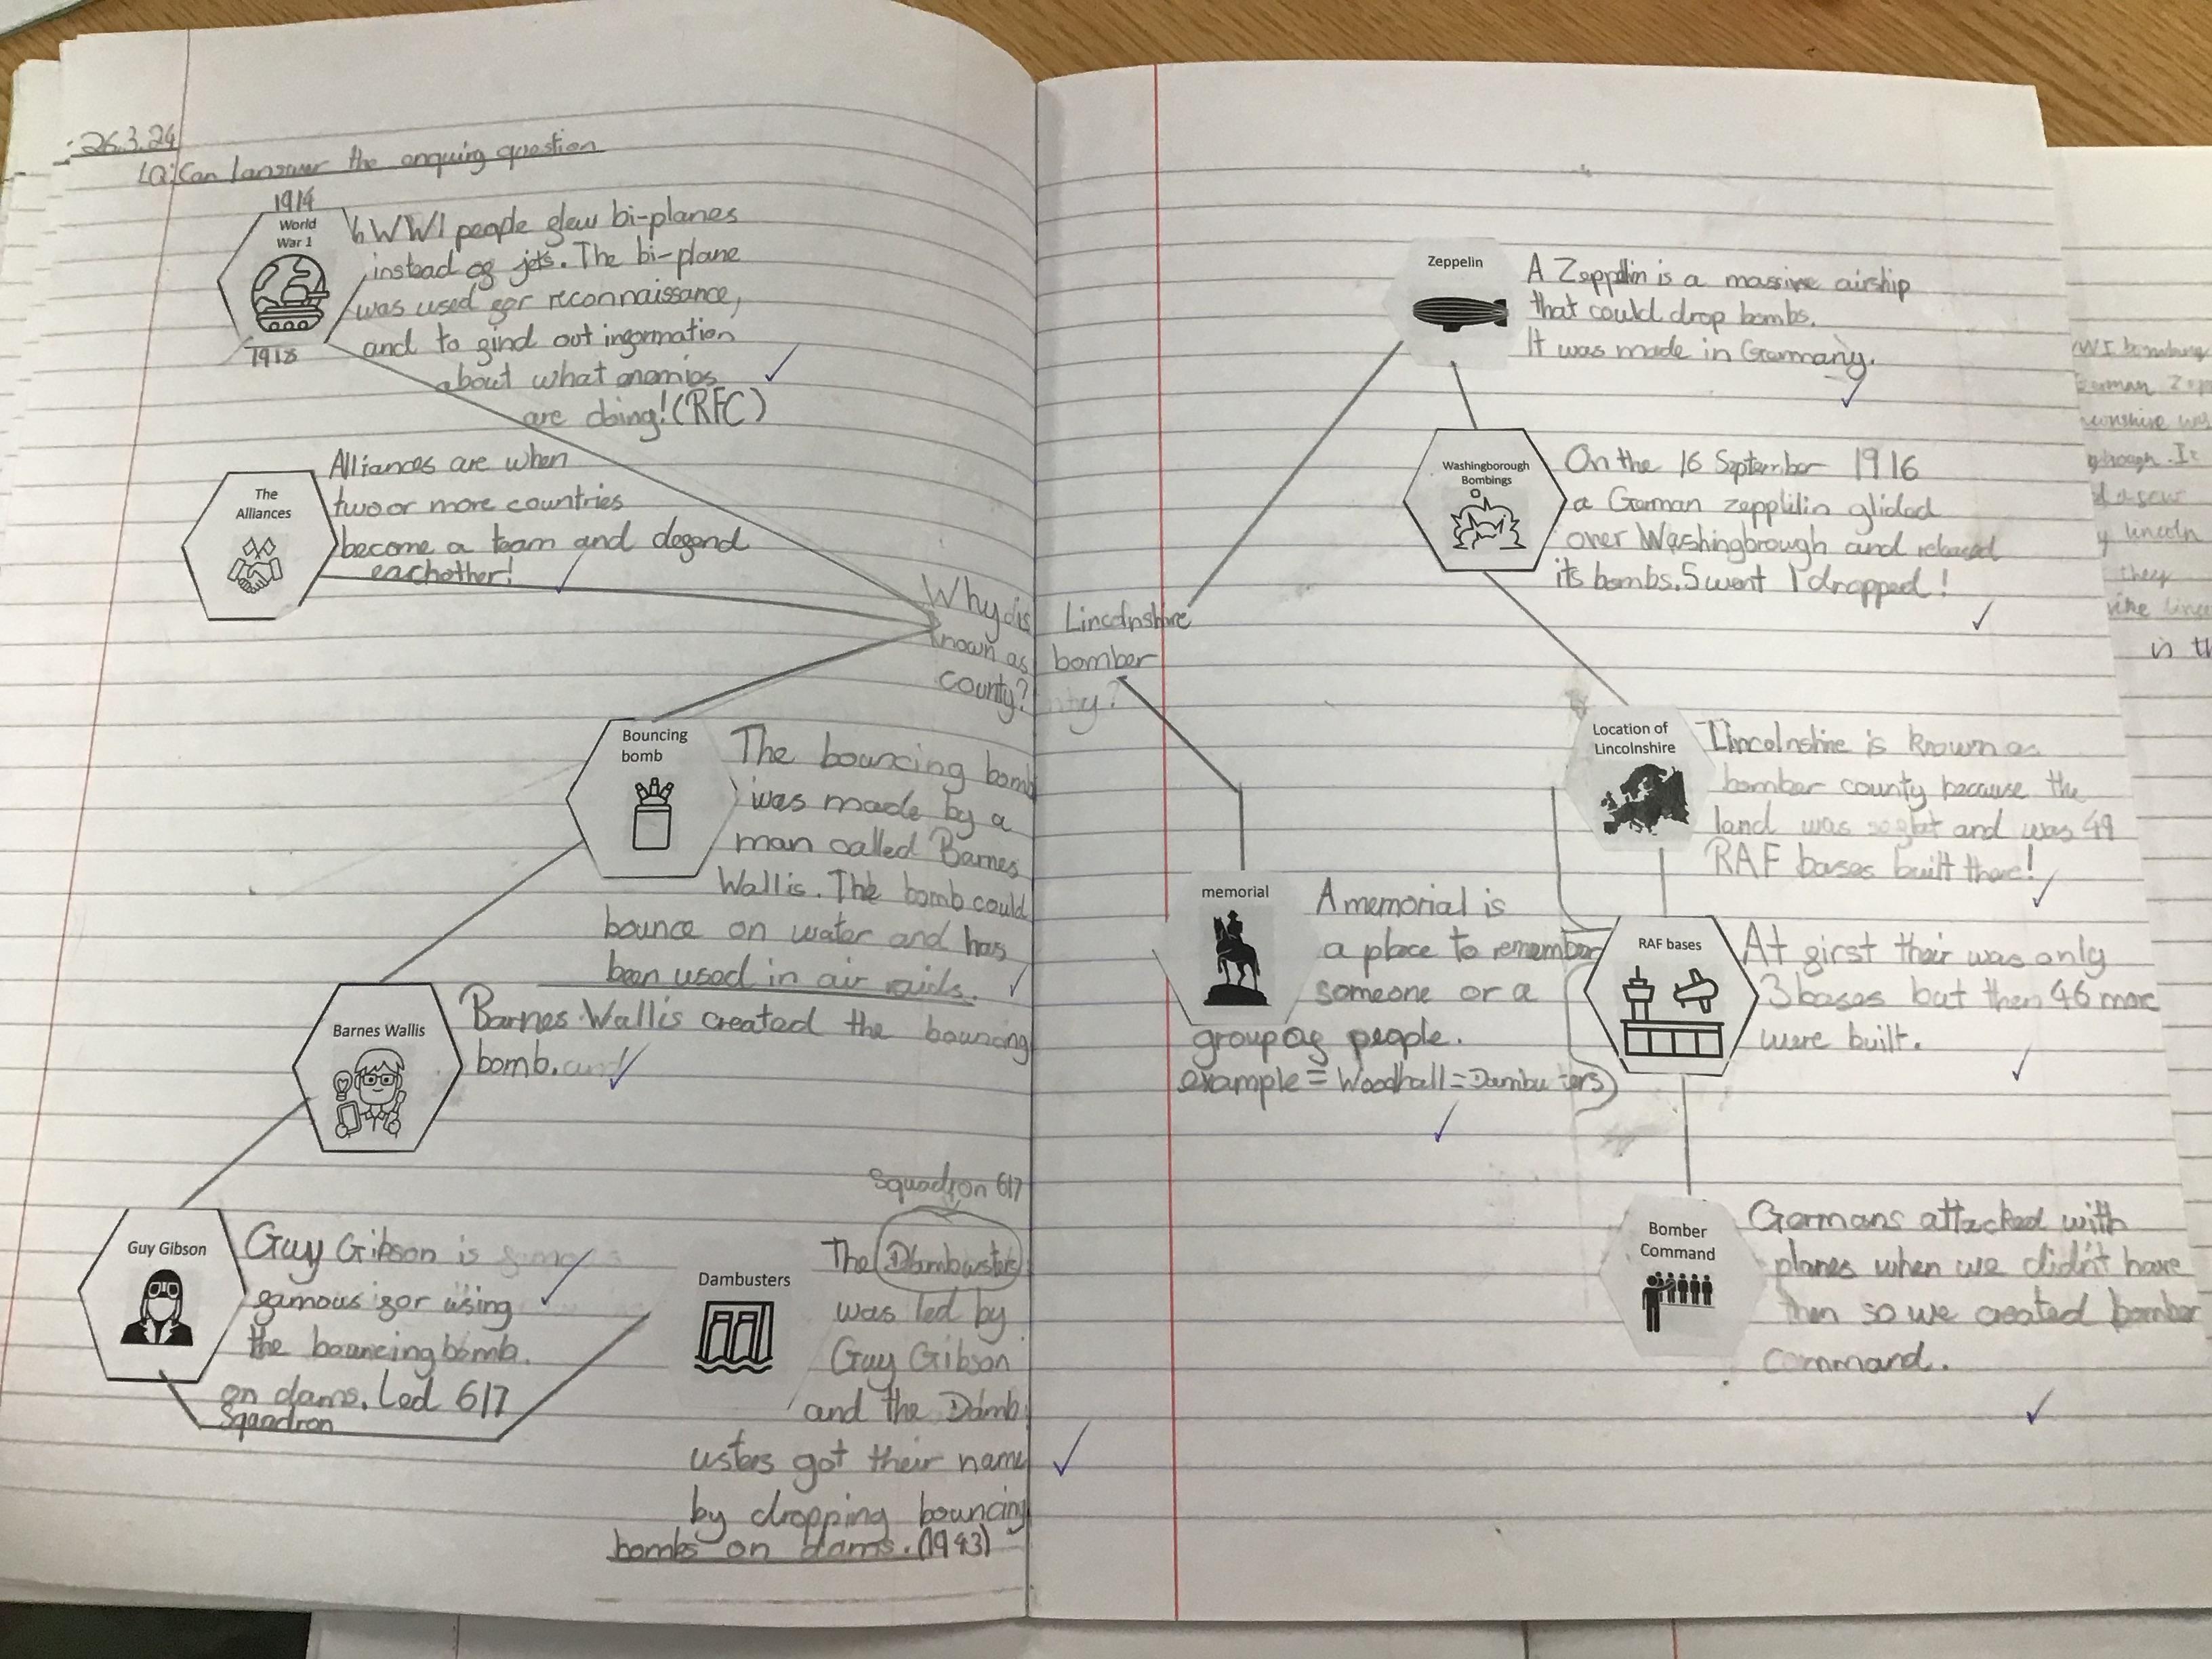 26.3.24
LQ: Can I answer the enquiry question
1914
World
War 1
1918
In WW1 people flew bi-planes
instead of jets. The bi-plane
was used for reconnaissance,
and to find out information
about what enemies
are doing! (RFC)
The
Alliances
Alliances are when
two or more countries
become a team and defend
eachother!
Why is Lincolnshire
known as bomber
county?
Bouncing
bomb
The bouncing bomb
was made by a
man called Barnes
Wallis. The bomb could
bounce on water and has
been used in air raids.
Barnes Wallis
Barnes Wallis created the bouncing
bomb.
Guy Gibson
Guy Gibson is
famous for using
the bouncing bomb
on dams. Led 617
Squadron
Squadron 617
Dambusters
The Dambusters
was led by
Guy Gibson
and the Damb
usters got their name
by dropping bouncing
bombs on dams. (1943)
Zeppelin
A Zeppelin is a massive airship
that could drop bombs.
It was made in Germany.
Washingborough
Bombings
On the 16 September 1916
a German zepplilin glided
over Washingbrough and released
its bombs. 5 went 1 dropped!
Location of
Lincolnshire
Lincolnshire is known as
bomber county because the
land was so flat and was 49
RAF bases built there!
memorial
A memorial is
a place to remember
someone or a
group of people.
example = Woodhall = Dambusters
RAF bases
At first their was only
3 bases but then 46 more
were built.
Bomber
Command
Germans attacked with
planes when we didn't have
then so we created bomber
command.
WWI bombing
German Zepp
they
in th